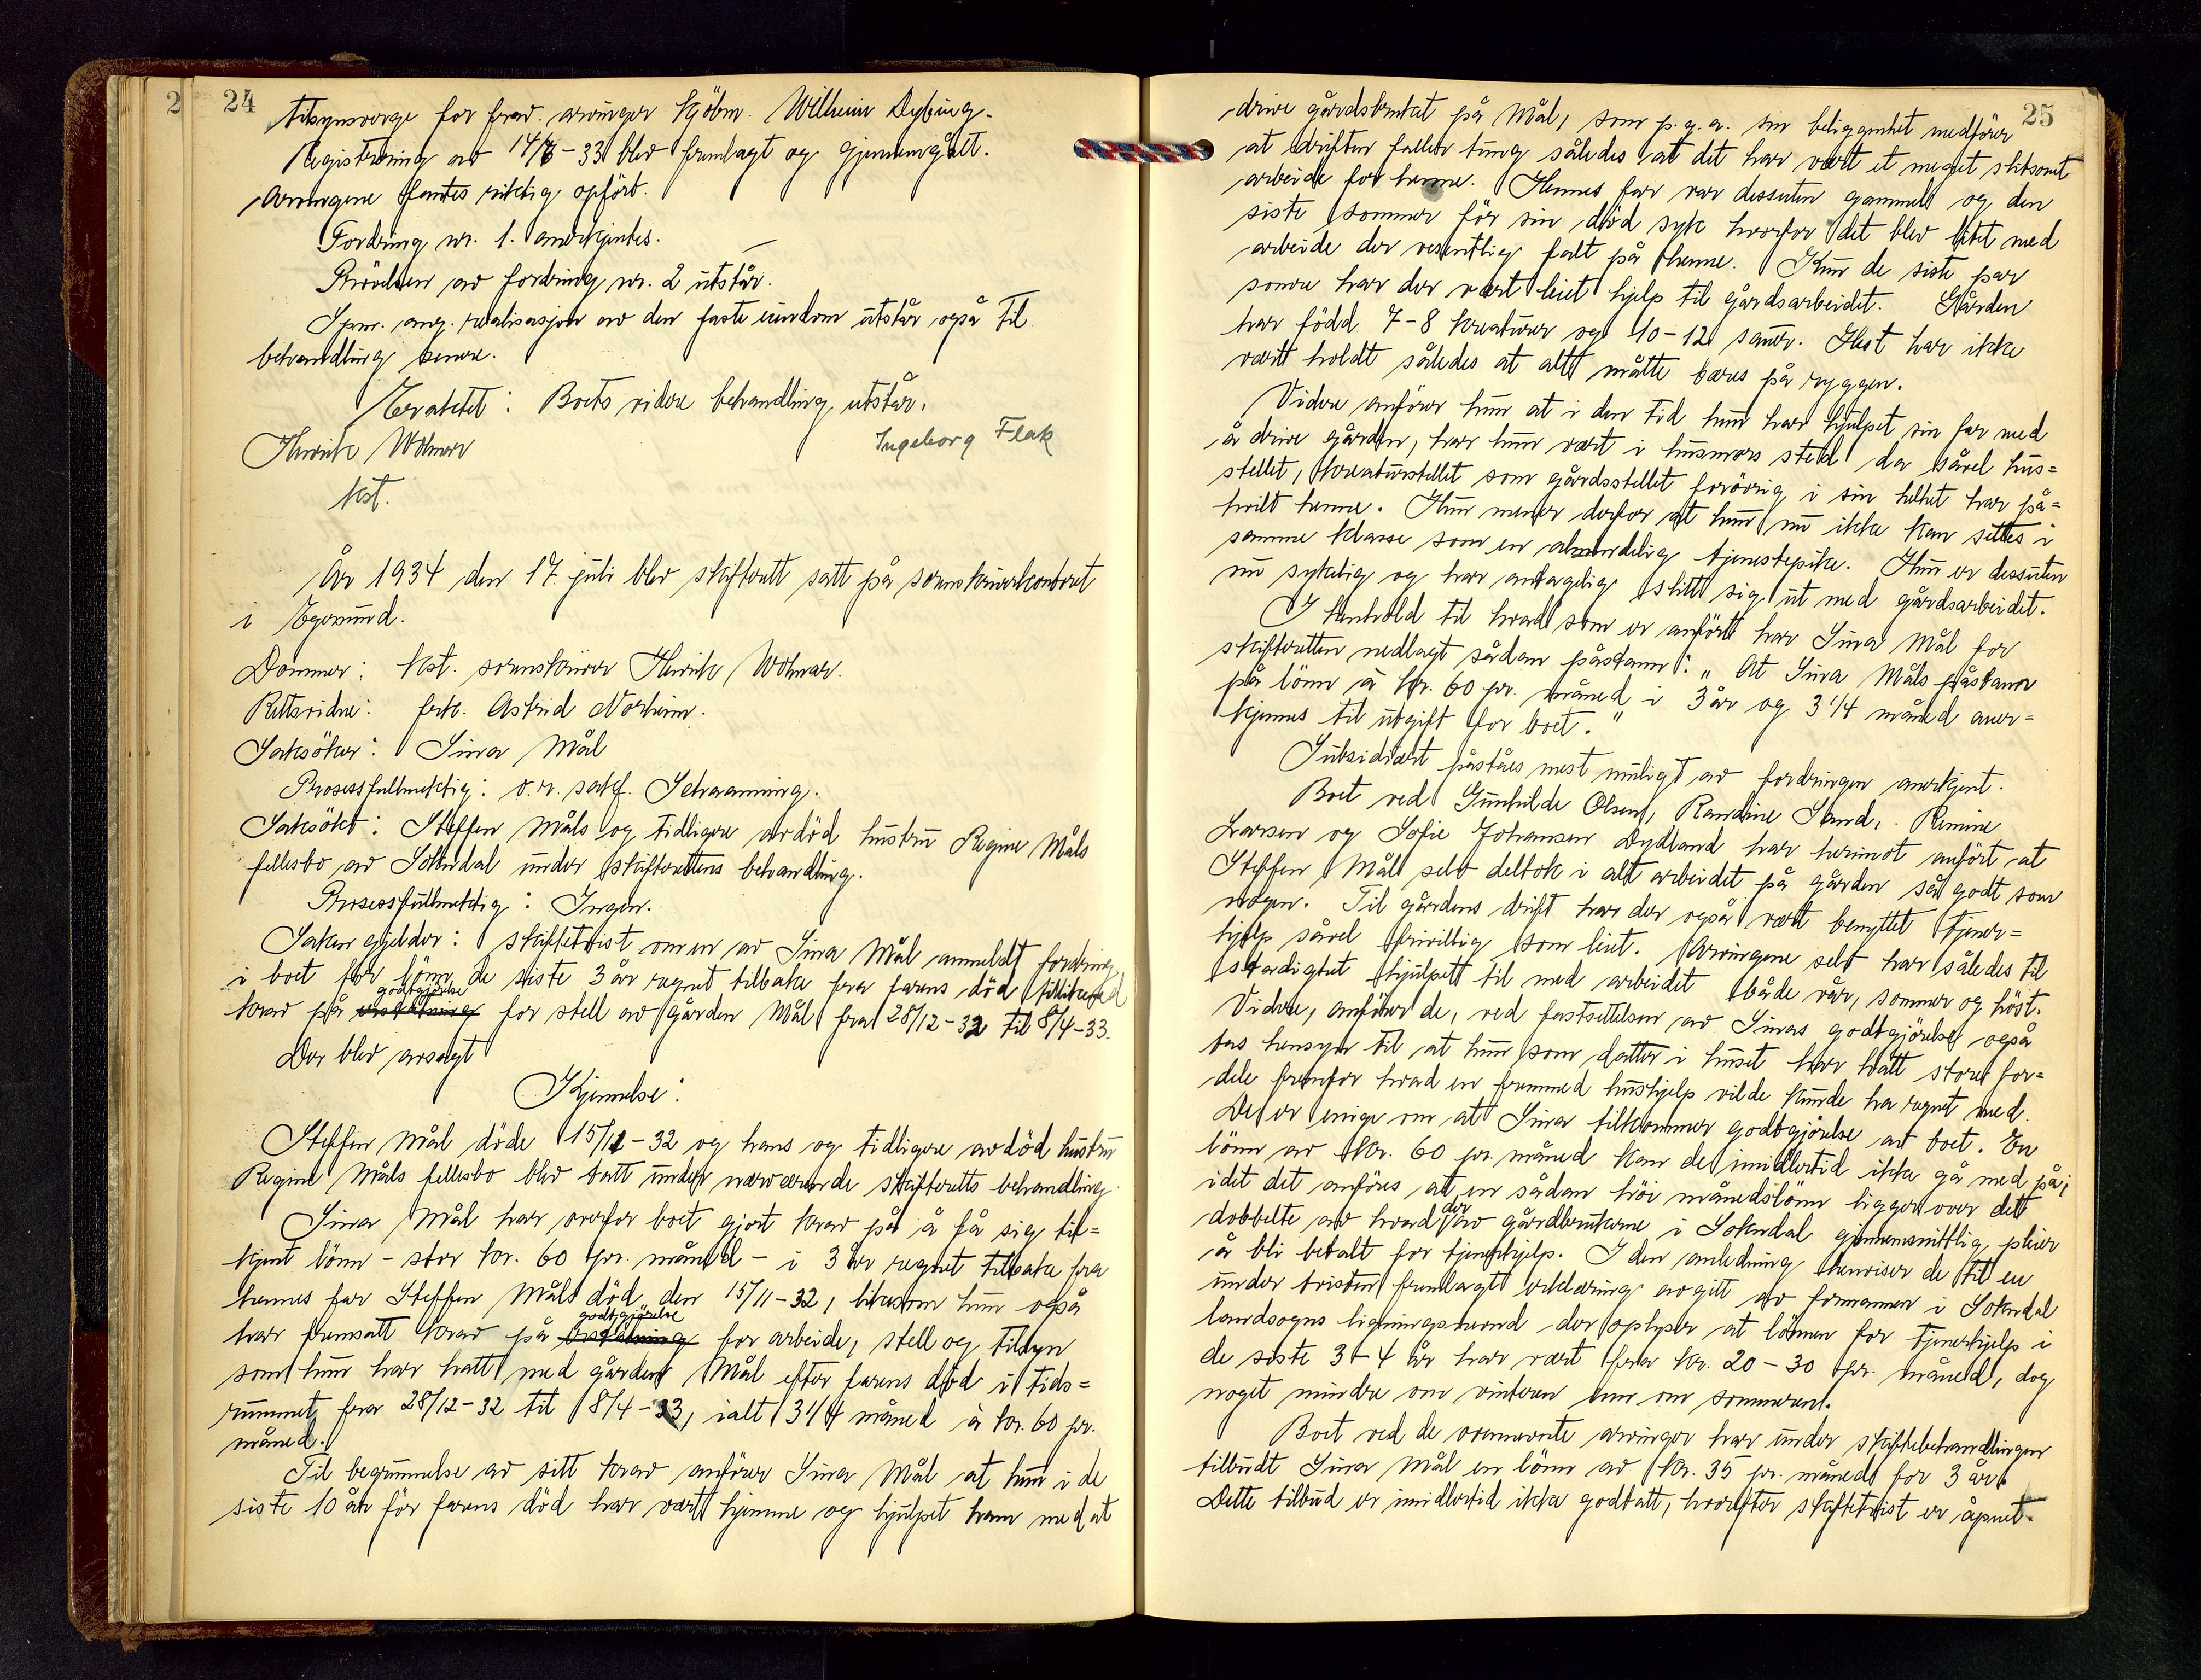 24
tilsynsverge for frav. arvinger kjöbm. Wilhelm Dybing.
Registrering av 14/6-33 blev fremlagt og gjennemgått.
Arvingene fantes riktig opfört.
Fordring nr. 1. anerkjentes.
Prövelsen av fordring nr. 2 utstår.
Spm. ang. realisasjon av den faste eiendom utstår også til
behandling senere.
Eragtet: Boets videre behandling utstår.
Henrik Wolmer Ingeborg Flak
kst.
År 1934 den 17. juli blev skifterett satt på sorenskriverkontoret
i Egersund.
Dommer: kst. sorenskriver Henrik Wolmer.
Rettsvidne: frk. Astrid Norheim.
Saksöker: Sina Mål
Prosessfullmektig: o.r. sakf. Schavanning.
Saksökt: Steffen Måls og tidligere avdöd hustru Regine Måls
fellesbo av Sokndal under skifterettens behandling.
Prosessfullmektig: Ingen.
Saken gjelder: skiftetvist om en av Sina Mål anmeldt fordring
i boet for lönn de siste 3 år regnet tilbake fra farens död tillikemed
godtgjörelse
krav på erstatning for stell av gården Mål fra 28/12-32 til 8/4-33.
Der blev avsagt
Kjennelse:
Steffen Mål döde 15/11-32 og hans og tidligere avdöd hustru
Regine Måls fellesbo blev tatt under nærværende skifteretts behandling.
Sina Mål har overfor boet gjort krav på å få sig til=
kjent lönn - stor kr. 60 pr. måned - i 3 år regnet tilbake fra
hennes far Steffen Måls död den 15/11-32, likesom hun også
godtgjörelse
har fremsatt krav på erstatning for arbeide, stell og tilsyn
som hun har hatt med gården Mål efter farens död i tids=
rummet fra 28/12-32 til 8/4-33, ialt 3 1/4 måned à kr. 60 pr.
måned.
Til begrunnelse av sitt krav anförer Sina Mål at hun i de
siste 10 år för farens död har vært hjemme og hjulpet ham med at
25
drive gårdsbruket på Mål, som p.g.a. sin beliggenhet medförer
at driften faller tung således at det har vært et meget slitsomt
arbeide for henne. Hennes far var dessuten gammel og den
siste sommer för sin död syk hvorfor det blev litet med
arbeide der vesentlig falt på henne. Kun de siste par
somre har der vært leiet hjelp til gårdsarbeidet. Gården
har född 7-8 kreaturer og 10-12 sauer. Hest har ikke
vært holdt således at alt måtte bæres på ryggen.
Videre anförer hun at i den tid hun har hjulpet sin far med
å drive gården, har hun vært i husmors sted da såvel hus=
stellet, kreaturstellet som gårdsstellet forövrig i sin helhet har på=
hvilt henne. Hun mener derfor at hun nu ikke kan settes i
samme klasse som en almindelig tjenestepike. Hun er dessuten
nu sykelig og har antagelig slitt sig ut med gårdsarbeidet.
I henhold til hvad som er anfört har Sina Mål for
skifteretten nedlagt sådan påstann: „At Sina Måls påstann
på lönn à kr. 60 pr. måned i 3 år og 3 1/4 måned aner=
kjennes til utgift for boet."
Subsidiært påståes mest muligt av fordringen anerkjent.
Boet ved Gunhilde Olsen, Randine Sand, Remine
Larsen og Sofie Johansen Dydland har herimot anfört at
Steffen Mål selv deltok i alt arbeidet på gården så godt som
nogen. Til gårdens drift har der også vært benyttet tjener=
hjelp såvel frivillig som leiet. Arvingene selv har således til
stadighet hjulpett til med arbeidet både vår, sommer og höst.
Videre, anförer de, ved fastsettelsen av Sinas godtgjörelse også
tas hensyn til at hun som datter i huset har hatt store for=
dele fremfor hvad en fremmed hushjelp vilde kunde ha regnet med.
De er enige om at Sina tilkommer godtgjörelse av boet. En
lönn av kr. 60 pr. måned kan de imidlertid ikke gå med på,
idet det anföres at en sådan höi månedslönn ligger over det
der
dobbelte av hvad av gårdbrukerne i Sokndal gjennemsnittlig pleier
å bli betalt for tjenerhjelp. I den anledning henviser de til en
under tvisten fremlagt erklæring avgitt av formannen i Sokndal
landsogns ligningsnevnd der oplyser at lönnen for tjenerhjelp i
de siste 3-4 år har vært fra kr. 20-30 pr. måned, dog
noget mindre om vinteren enn om sommeren.
Boet ved de ovennevnte arvinger har under skiftebehandlingen
tilbudt Sina Mål en lönn av kr. 35 pr. måned for 3 år.
Dette tilbud er imidlertid ikke godtatt, hvorefter skiftetvist er åpnet.